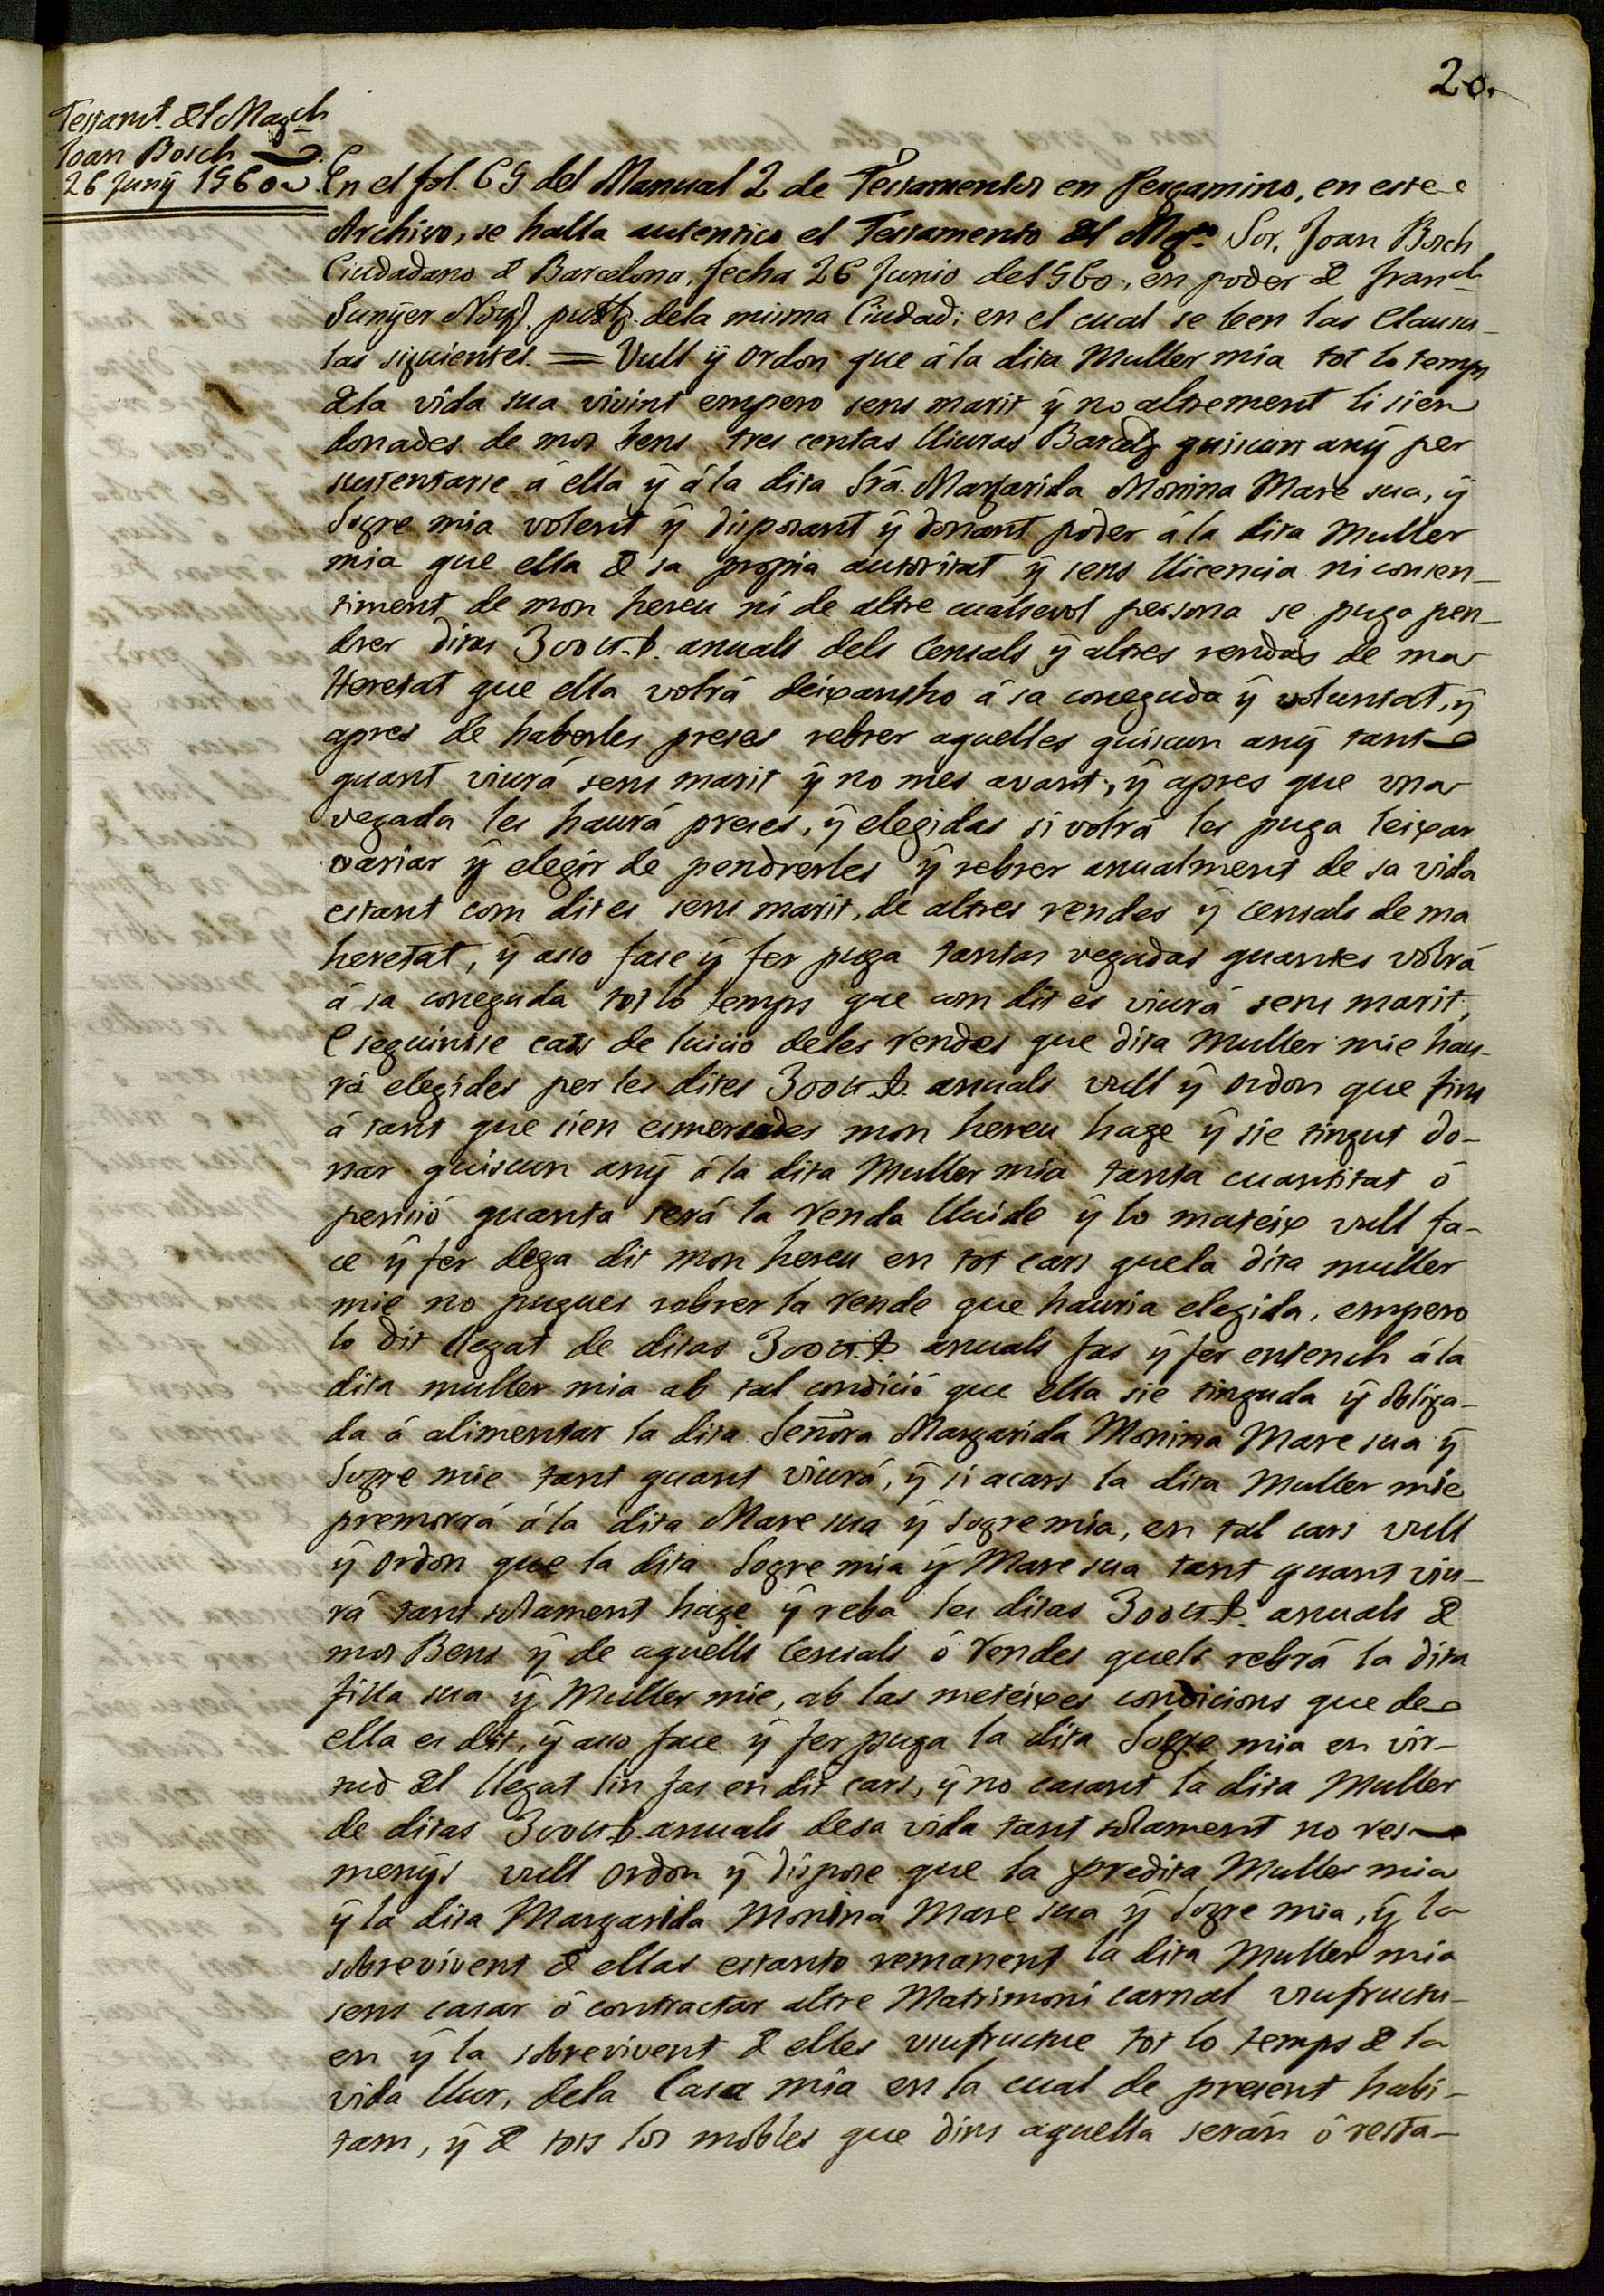 20.
Testamt. del Magch
Joan Bosch
26 Juny 1560
En el fol. 65 del Manual 2 de Testamentos en Pergamino, en este
Archivo, se halla autentico el Testamento del Mgco Sor. Joan Bosch
Ciudadano de Barcelona, fecha 26 Junio de 1560, en poder de Franch
Sunÿer Noty. pubh. dela misma Ciudad; en el cual se leen las Clausu-
las siguientes. = Vull ÿ Ordon que á la dita Muller mia tot lo temps
de la vida sua vivint empero sens marit ÿ no altrement li sien
donades de mos bens tres centas lliuras Barcelz quiscun anÿ per
sustentarse á ella ÿ á la dita Sra. Margarida Monina Mare sua, ÿ
Sogre mia volent ÿ disposant ÿ donant poder á la dita Muller
mia que ella de sa propia autoritat ÿ sens llicencia ni consen-
timent de mon hereu ni de altre cualsevol persona se puga pen-
drer ditas 300 ll. b. anuals dels Censals ÿ altres rendas de ma
Heretat que ella volrá deixantho á sa coneguda ÿ voluntat, ÿ
apres de haberles preses rebrer aquelles quiscun anÿ tant
quant viurá sens marit ÿ no mes avant, ÿ apres que una
vegada les haurá preses, ÿ elegidas si volrá les puga leixar
variar ÿ elegir de pendrerles ÿ rebrer anualment de sa vida
estant com dit es sens marit, de altres rendes ÿ censals de ma
heretat, ÿ asso fase ÿ fer puga tantas vegadas quantes volrá
á sa coneguda tot lo temps que com dit es viurá sens marit,
E seguintse cars de luicio deles rendes que dita Muller mie hau-
rá elegides per les dites 300 ll. b. anuals vull ÿ ordon que fins
á tant que sien esmersades mon hereu hage ÿ sie tingut do-
nar quiscun anÿ á la dita Muller mia tanta cuantitat ó
pensió quanta será la renda lluide ÿ lo mateix vull fa-
ce ÿ fer dega dit mon hereu en tot cars quela dita muller
mie no pugues rebrer la rende que hauria elegida, empero
lo dit llegat de ditas 300 ll. b. anuals fas ÿ fer entench á la
dita muller mia ab tal condició que ella sie tinguda ÿ obliga-
da á alimentar la dita Señora Margarida Monina Mare sua ÿ
Sogre mie tant quant viurá, ÿ si acars la dita Muller mie
premorrá á la dita Mare sua ÿ Sogre mia, en tal cars vull
ÿ ordon que la dita Sogre mia ÿ Mare sua tant quant viu-
rá tant solament hage ÿ reba les ditas 300 ll. b. anuals de
mos Bens ÿ de aquells Censals ó rendes quels rebrá la dita
filla sua ÿ Muller mie, ab las meteixes condicions que de
ella es dit, ÿ asso face ÿ fer puga la dita Sogre mia en vir-
tud del llegat lin fas en dit cars, ÿ no casant la dita Muller
de ditas 300 ll. b. anuals desa vida tant solament no res
menÿs vull ordon ÿ dispose que la predita Muller mia
ÿ la dita Margarida Monina Mare sua ÿ Sogre mia, ÿ la
sobrevivent de ellas estanto remanent la dita Muller mia
sens casar ó contractar altre Matrimoni carnal usufructu-
en ÿ la sobrevivent de elles usufructue tot lo temps de la
vida llur, dela Casa mia en la cual de present habi-
tam, ÿ de tots los mobles que dins aquella serán ó resta-